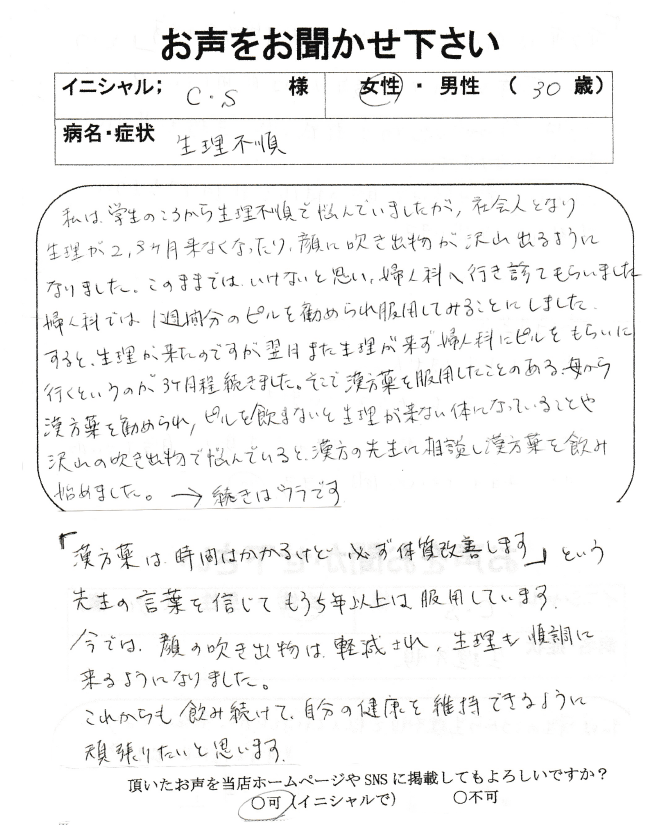 お声をお聞かせ下さい
イニシャル； C・S 様 女性 ・ 男性 （ 30 歳）
病名・症状 生理不順
私は、学生のころから生理不順で悩んでいましたが、社会人となり
生理が2,3ヶ月来なくなったり、顔に吹き出物が沢山出るように
なりました。このままではいけないと思い、婦人科へ行き診てもらいました
婦人科では1週間分のピルを勧められ服用してみることにしました。
すると、生理が来たのですが翌月また生理が来ず婦人科にピルをもらいに
行くというのが3ヶ月程続きました。そこで漢方薬を服用したことのある母から
漢方薬を勧められ、ピルを飲まないと生理が来ない体になっていることや
沢山の吹き出物で悩んでいると、漢方の先生に相談し漢方薬を飲み
始めました。 → 続きはウラです
「漢方薬は時間はかかるけど必ず体質改善します」という
先生の言葉を信じてもう5年以上は服用しています。
今では、顔の吹き出物は軽減され、生理も順調に
来るようになりました。
これからも飲み続けて、自分の健康を維持できるように
頑張りたいと思います。
頂いたお声を当店ホームページやSNSに掲載してもよろしいですか？
○可（イニシャルで） ○不可